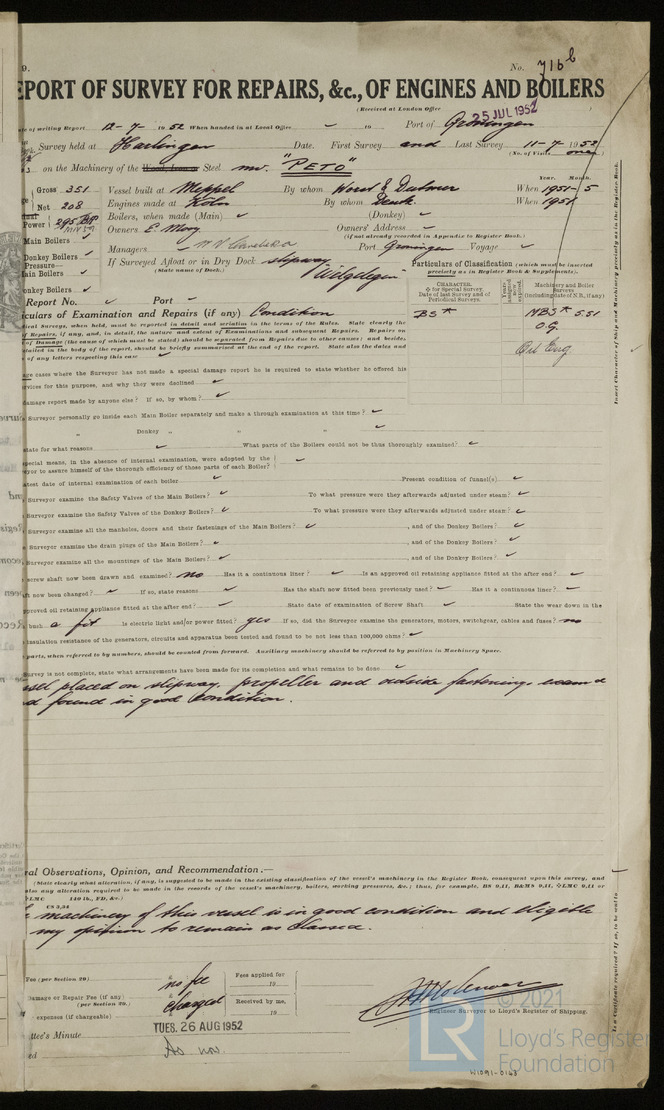 No. 716b
EPORT OF SURVEY FOR REPAIRS, &c., OF ENGINES AND BOILERS
(Received at London Office
25 JUL 1952
of writing Report 12-7-1952 When handed in at Local Office 19 Port of Groningen
Survey held at Harlingen Date. First Survey and Last Survey 11-7-1952
(No. of Visits one)
on the Machinery of the Wood, Iron or Steel mv. "PETO"
Gross 351 Vessel built at Meppel By whom Worst & Dutmer When 1951-5
Year. Month.
Net 208 Engines made at Köln By whom Deutz When 1951
Power 295 BHP Boilers, when made (Main) (Donkey)
Main Boilers Owners E. Mooy Owners' Address
(if not already recorded in Appendix to Register Book.)
Donkey Boilers Managers Port Groningen Voyage
Pressure
ain Boilers If Surveyed Afloat or in Dry Dock slipway
(State name of Dock.)
Particulars of Classification (which must be inserted precisely as in Register Book & Supplements).
onkey Boilers
Report No. Port
CHARACTER. & for Special Survey. Date of last Survey and of Periodical Surveys.
Machinery and Boiler Surveys (including date of N.B., if any)
culars of Examination and Repairs (if any) Condition
BS* MBS* 5.51
O.G.
Oil Eng
ical Surveys, when held, must be reported in detail and seriatim in the terms of the Rules. State clearly the
of Repairs, if any, and, in detail, the nature and extent of Examinations and subsequent Repairs. Repairs on
of Damage (the cause of which must be stated) should be separated from Repairs due to other causes; and besides,
etailed in the body of the report, should be briefly summarised at the end of the report. State also the dates and
of any letters respecting this case
ge cases where the Surveyor has not made a special damage report he is required to state whether he offered his
rvices for this purpose, and why they were declined
damage report made by anyone else? If so, by whom?
Surveyor personally go inside each Main Boiler separately and make a through examination at this time?
" Donkey " " "
state for what reasons What parts of the Boilers could not be thus thoroughly examined?
special means, in the absence of internal examination, were adopted by the
eyor to assure himself of the thorough efficiency of those parts of each Boiler?
atest date of internal examination of each boiler Present condition of funnel(s)
Surveyor examine the Safety Valves of the Main Boilers? To what pressure were they afterwards adjusted under steam?
Surveyor examine the Safety Valves of the Donkey Boilers? To what pressure were they afterwards adjusted under steam?
Surveyor examine all the manholes, doors and their fastenings of the Main Boilers? , and of the Donkey Boilers?
Surveyor examine the drain plugs of the Main Boilers? , and of the Donkey Boilers?
Surveyor examine all the mountings of the Main Boilers? , and of the Donkey Boilers?
screw shaft now been drawn and examined? no Has it a continuous liner? Is an approved oil retaining appliance fitted at the after end?
aft now been changed? If so, state reasons Has the shaft now fitted been previously used? Has it a continuous liner?
pproved oil retaining appliance fitted at the after end? State date of examination of Screw Shaft State the wear down in the
bush a fit Is electric light and/or power fitted? yes If so, did the Surveyor examine the generators, motors, switchgear, cables and fuses? no
insulation resistance of the generators, circuits and apparatus been tested and found to be not less than 100,000 ohms?
parts, when referred to by numbers, should be counted from forward. Auxiliary machinery should be referred to by position in Machinery Space.
survey is not complete, state what arrangements have been made for its completion and what remains to be done
ssel placed on slipway, propeller and outside fastenings examd
d found in good condition.
ral Observations, Opinion, and Recommendation.—
(State clearly what alteration, if any, is suggested to be made in the existing classification of the vessel's machinery in the Register Book, consequent upon this survey, and
also any alteration required to be made in the records of the vessel's machinery, boilers, working pressures, &c.; thus, for example, BS 9,11, B&MS 9,11, LMC 9,11 or
LMC 140 lb., FD, &c.)
CS 3,34
machinery of this vessel is in good condition and eligible
my opinion to remain as classed.
Fee (per Section 29) no fee Fees applied for
19
Damage or Repair Fee (if any) charged
(per Section 29.)
Received by me,
expenses (if chargeable) 19
Engineer Surveyor to Lloyd's Register of Shipping.
ttee's Minute TUES. 26 AUG 1952
ed As now.
© 2021
LR
Lloyd's Register
Foundation
W1091-0163